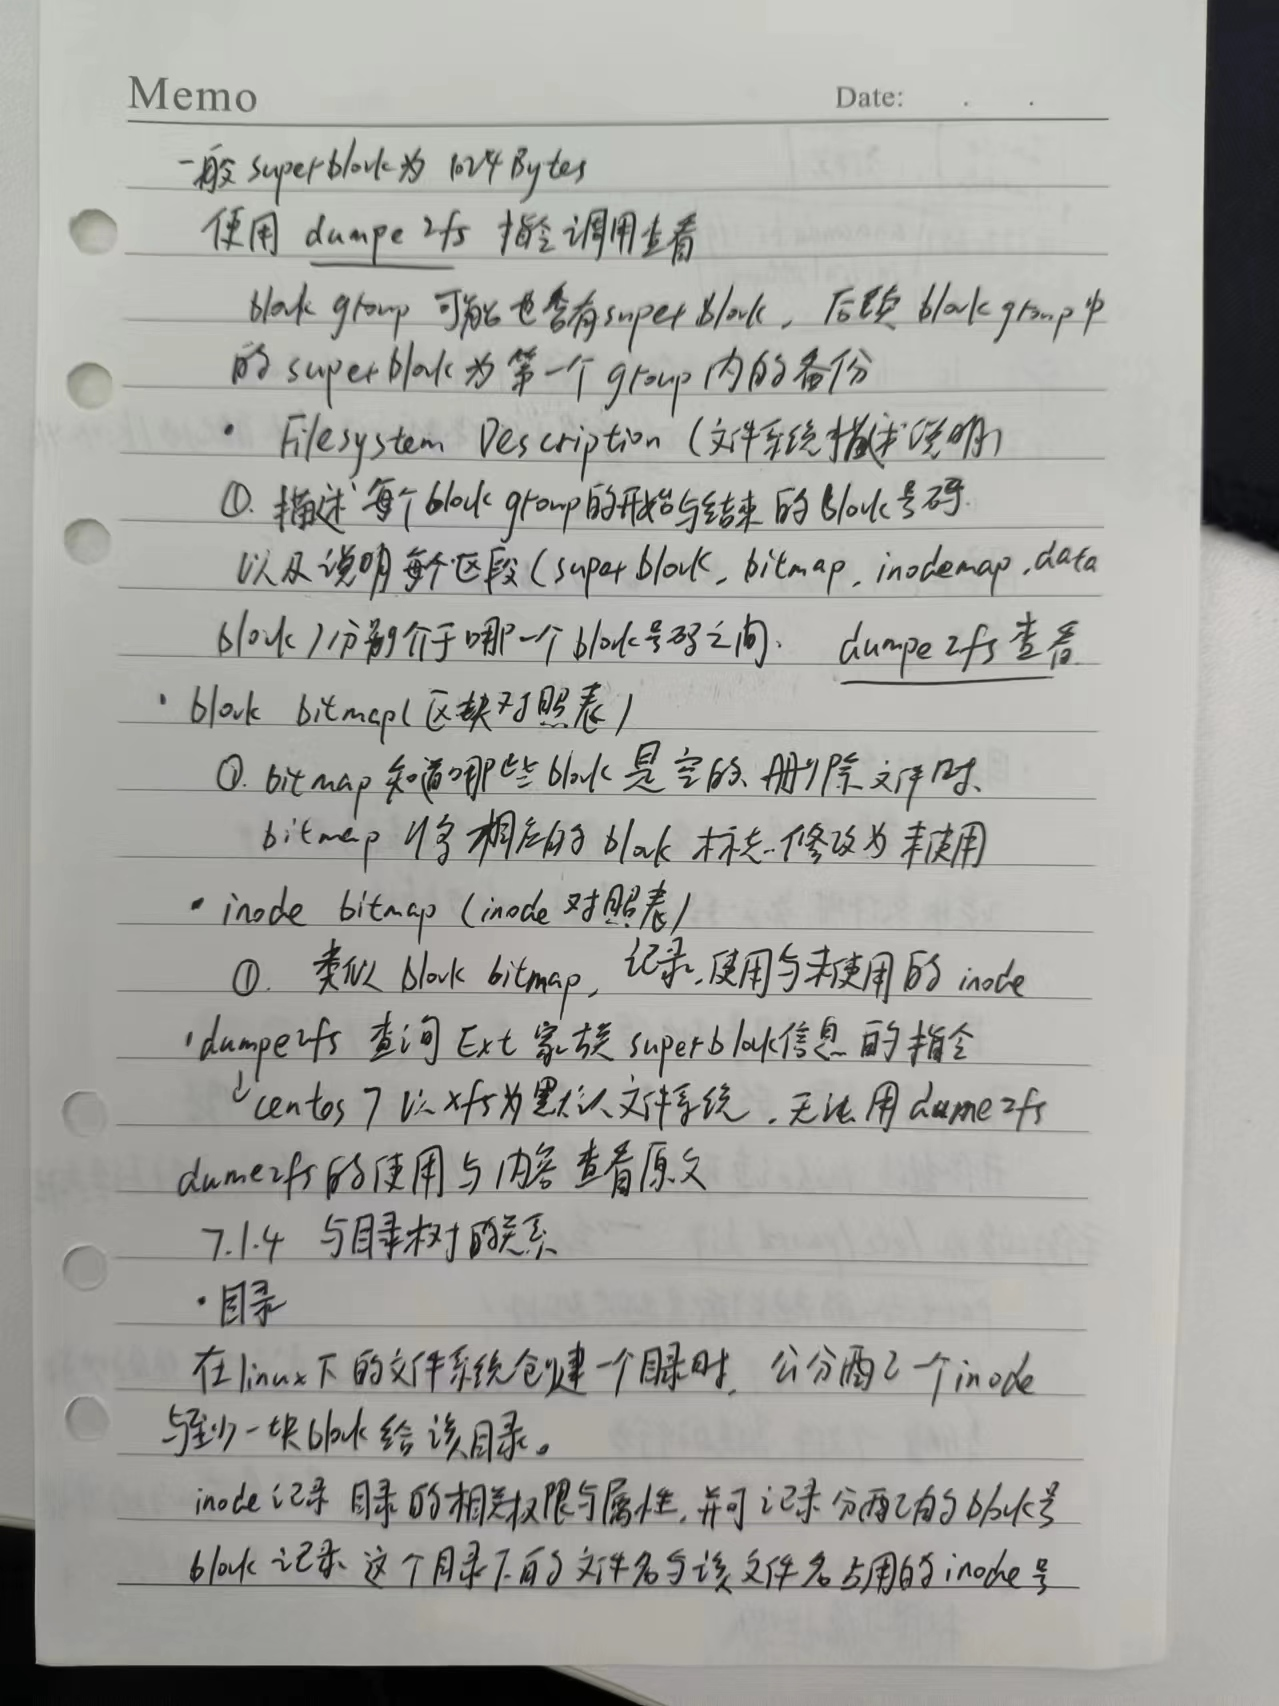 Memo
Date: . .
一般 superblock为 1024 Bytes
使用 dumpe2fs 指令调用查看
block group 可能也含有superblock, 后续 block group中
的 superblock为第一个 group 内的备份
· Filesystem Description (文件系统描述说明)
①. 描述每个block group的开始与结束的Block号码.
以及说明每个区段(superblock, bitmap, inodemap, data
block)分别介于哪一个block号码之间. dumpe2fs查看
· block bitmap(区块对照表)
①. bitmap知道哪些block是空的、删除文件时、
bitmap 将相应的 block 标志修改为未使用
· inode bitmap (inode对照表)
①. 类似 block bitmap, 记录使用与未使用的 inode
· dumpe2fs 查询 Ext 家族 superblock信息的指令
↓ centos 7 以xfs为默认文件系统, 无法用dume2fs
dume2fs的使用与内容查看原文
7.1.4 与目录树的关系
· 目录
在linux下的文件系统创建一个目录时, 公分配一个inode
与至少一块block给该目录。
inode记录目录的相关权限与属性, 并可记录分配有的block号
block记录这个目录下的文件名与该文件名占用的inode号